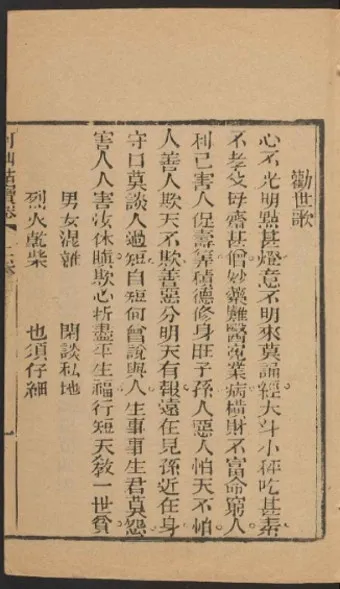 勸世歌
心不光明點甚燈意不明來莫誦經大斗小秤吃甚素
不孝父母齋甚僧妙藥難醫寃業病橫財不富命窮人
利己害人促壽算積德修身旺子孫人惡人怕天不怕
人善人欺天不欺善惡分明天有報遠在見孫近在身
守口莫談人過短自短何曾說與人生事事生君莫怨
害人人害汝休瞋欺心折盡平生福行短天教一世貧
男女混雜 閑談私地
烈火乾柴 也須仔細